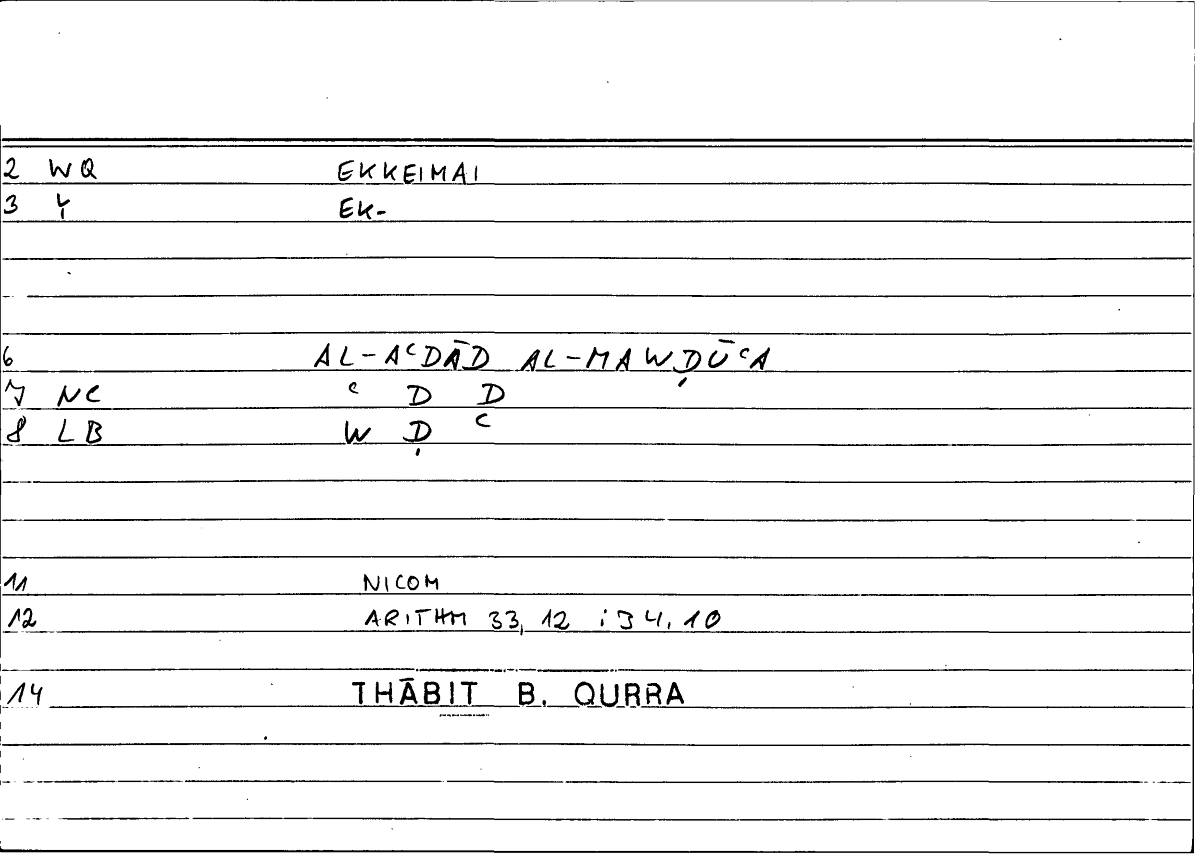 2 WQ EKKEIMAI
3 Y EK-
6 AL-AᶜDĀD AL-MAWḌŪᶜA
7 NC ᶜ D D
8 LB W Ḍ ᶜ
11 NICOM
12 ARITHM 33,12 ; 34.10
14 THĀBIT B. QURRA